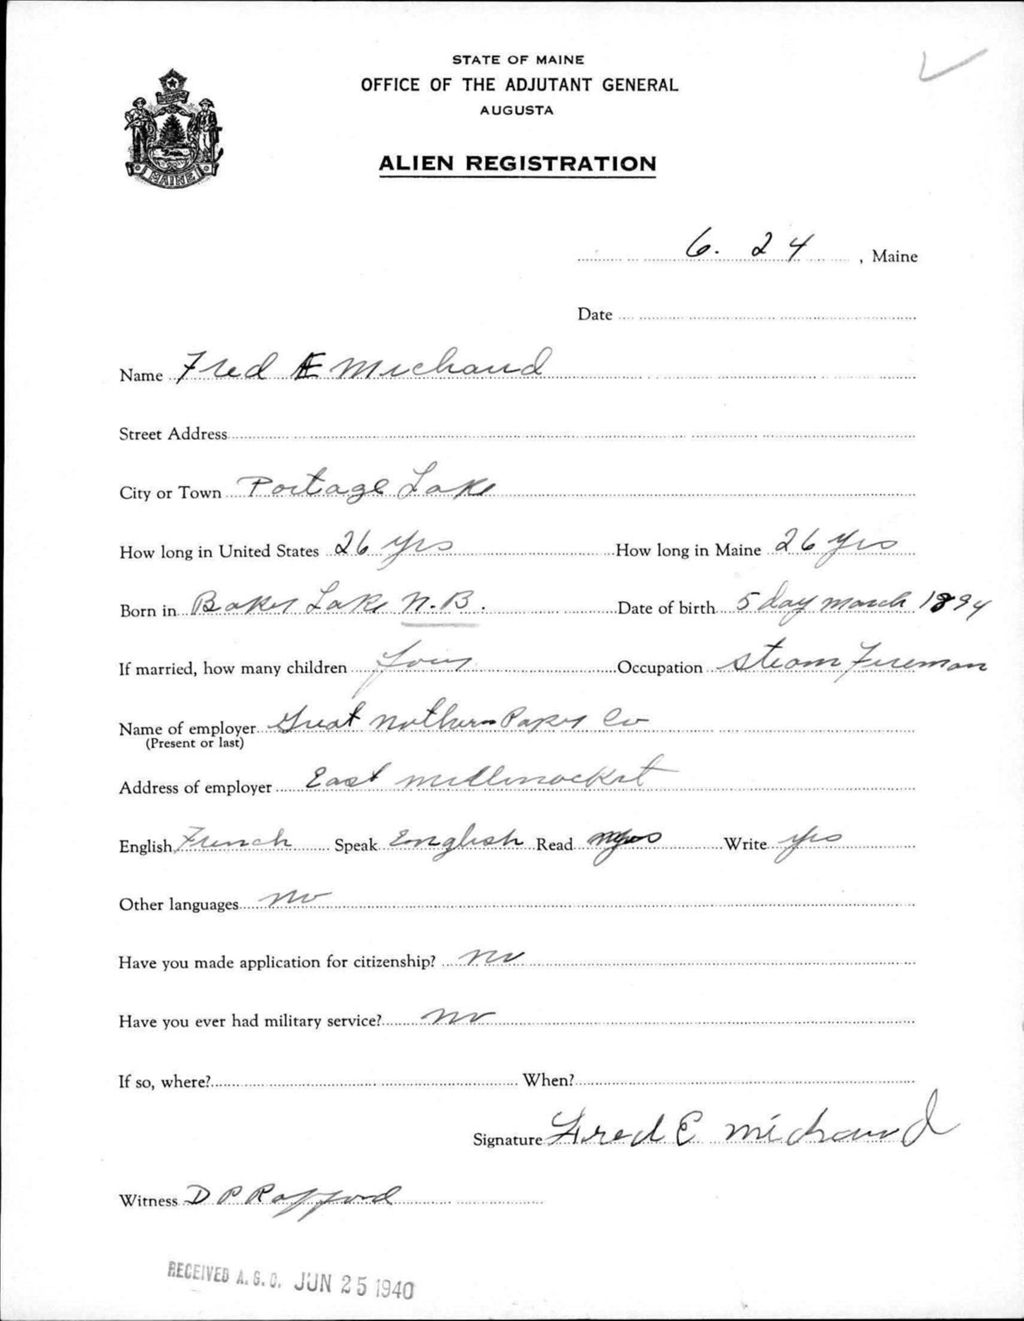 STATE OF MAINE
OFFICE OF THE ADJUTANT GENERAL
AUGUSTA
ALIEN REGISTRATION
MAINE
6. 24, Maine
Date
Name Fred E Michaud
Street Address
City or Town Portage Lake
How long in United States 26 yrs How long in Maine 26 yrs
Born in Baker Lake N.B. Date of birth 5 day march 1894
If married, how many children four Occupation Steam Fireman
Name of employer Great Nothern Paper Co
(Present or last)
Address of employer East Millinocket
English French Speak English Read yes Write yes
Other languages no
Have you made application for citizenship? no
Have you ever had military service? no
If so, where? When?
Signature Fred E michaud
Witness D P Rafford
RECEIVED A.G.O. JUN 25 1940